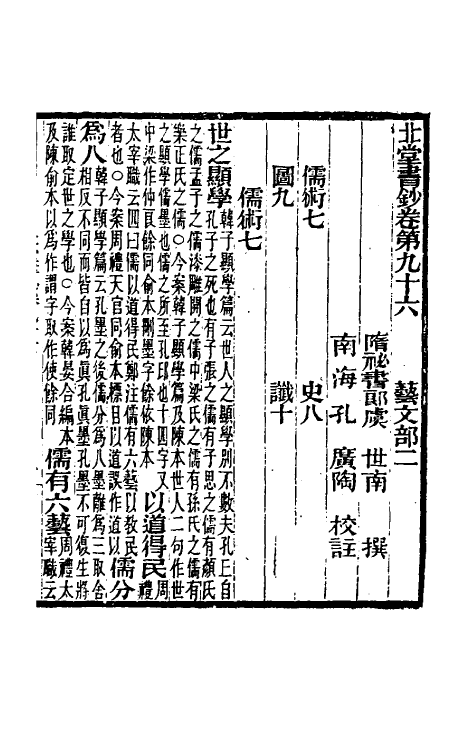 北堂書鈔卷第九十六　藝文部二
隋祕書郎虞　世南　撰
南海孔　廣陶　校註
儒術七　史八
圖九　讖十
儒術七
世之顯學韓子顯學篇云世人之顯學別不數夫孔丘自
孔子之死也有子張之儒有子思之儒有顏氏
之儒孟子之儒漆雕開之儒中梁氏之儒有孫氏之儒有
樂正氏之儒○今案韓子顯學篇及陳本世人二句作世
之顯學儒墨也儒之所至孔邱也十四字又
中梁作仲良餘同俞本刪墨字餘依陳本以道得民周禮
太宰職云四曰儒以道得民鄭注儒有六藝以教民
者也○今案周禮天官同俞本標目以道誤作道以儒分
爲八韓子顯學篇云孔墨之後儒分爲八墨離爲三取舍
相反不同而皆自以爲眞孔墨孔墨不可復生將
誰取定世之學也○今案韓晏合編本
及陳俞本以爲作謂字取作使餘同儒有六藝周禮太
宰職云